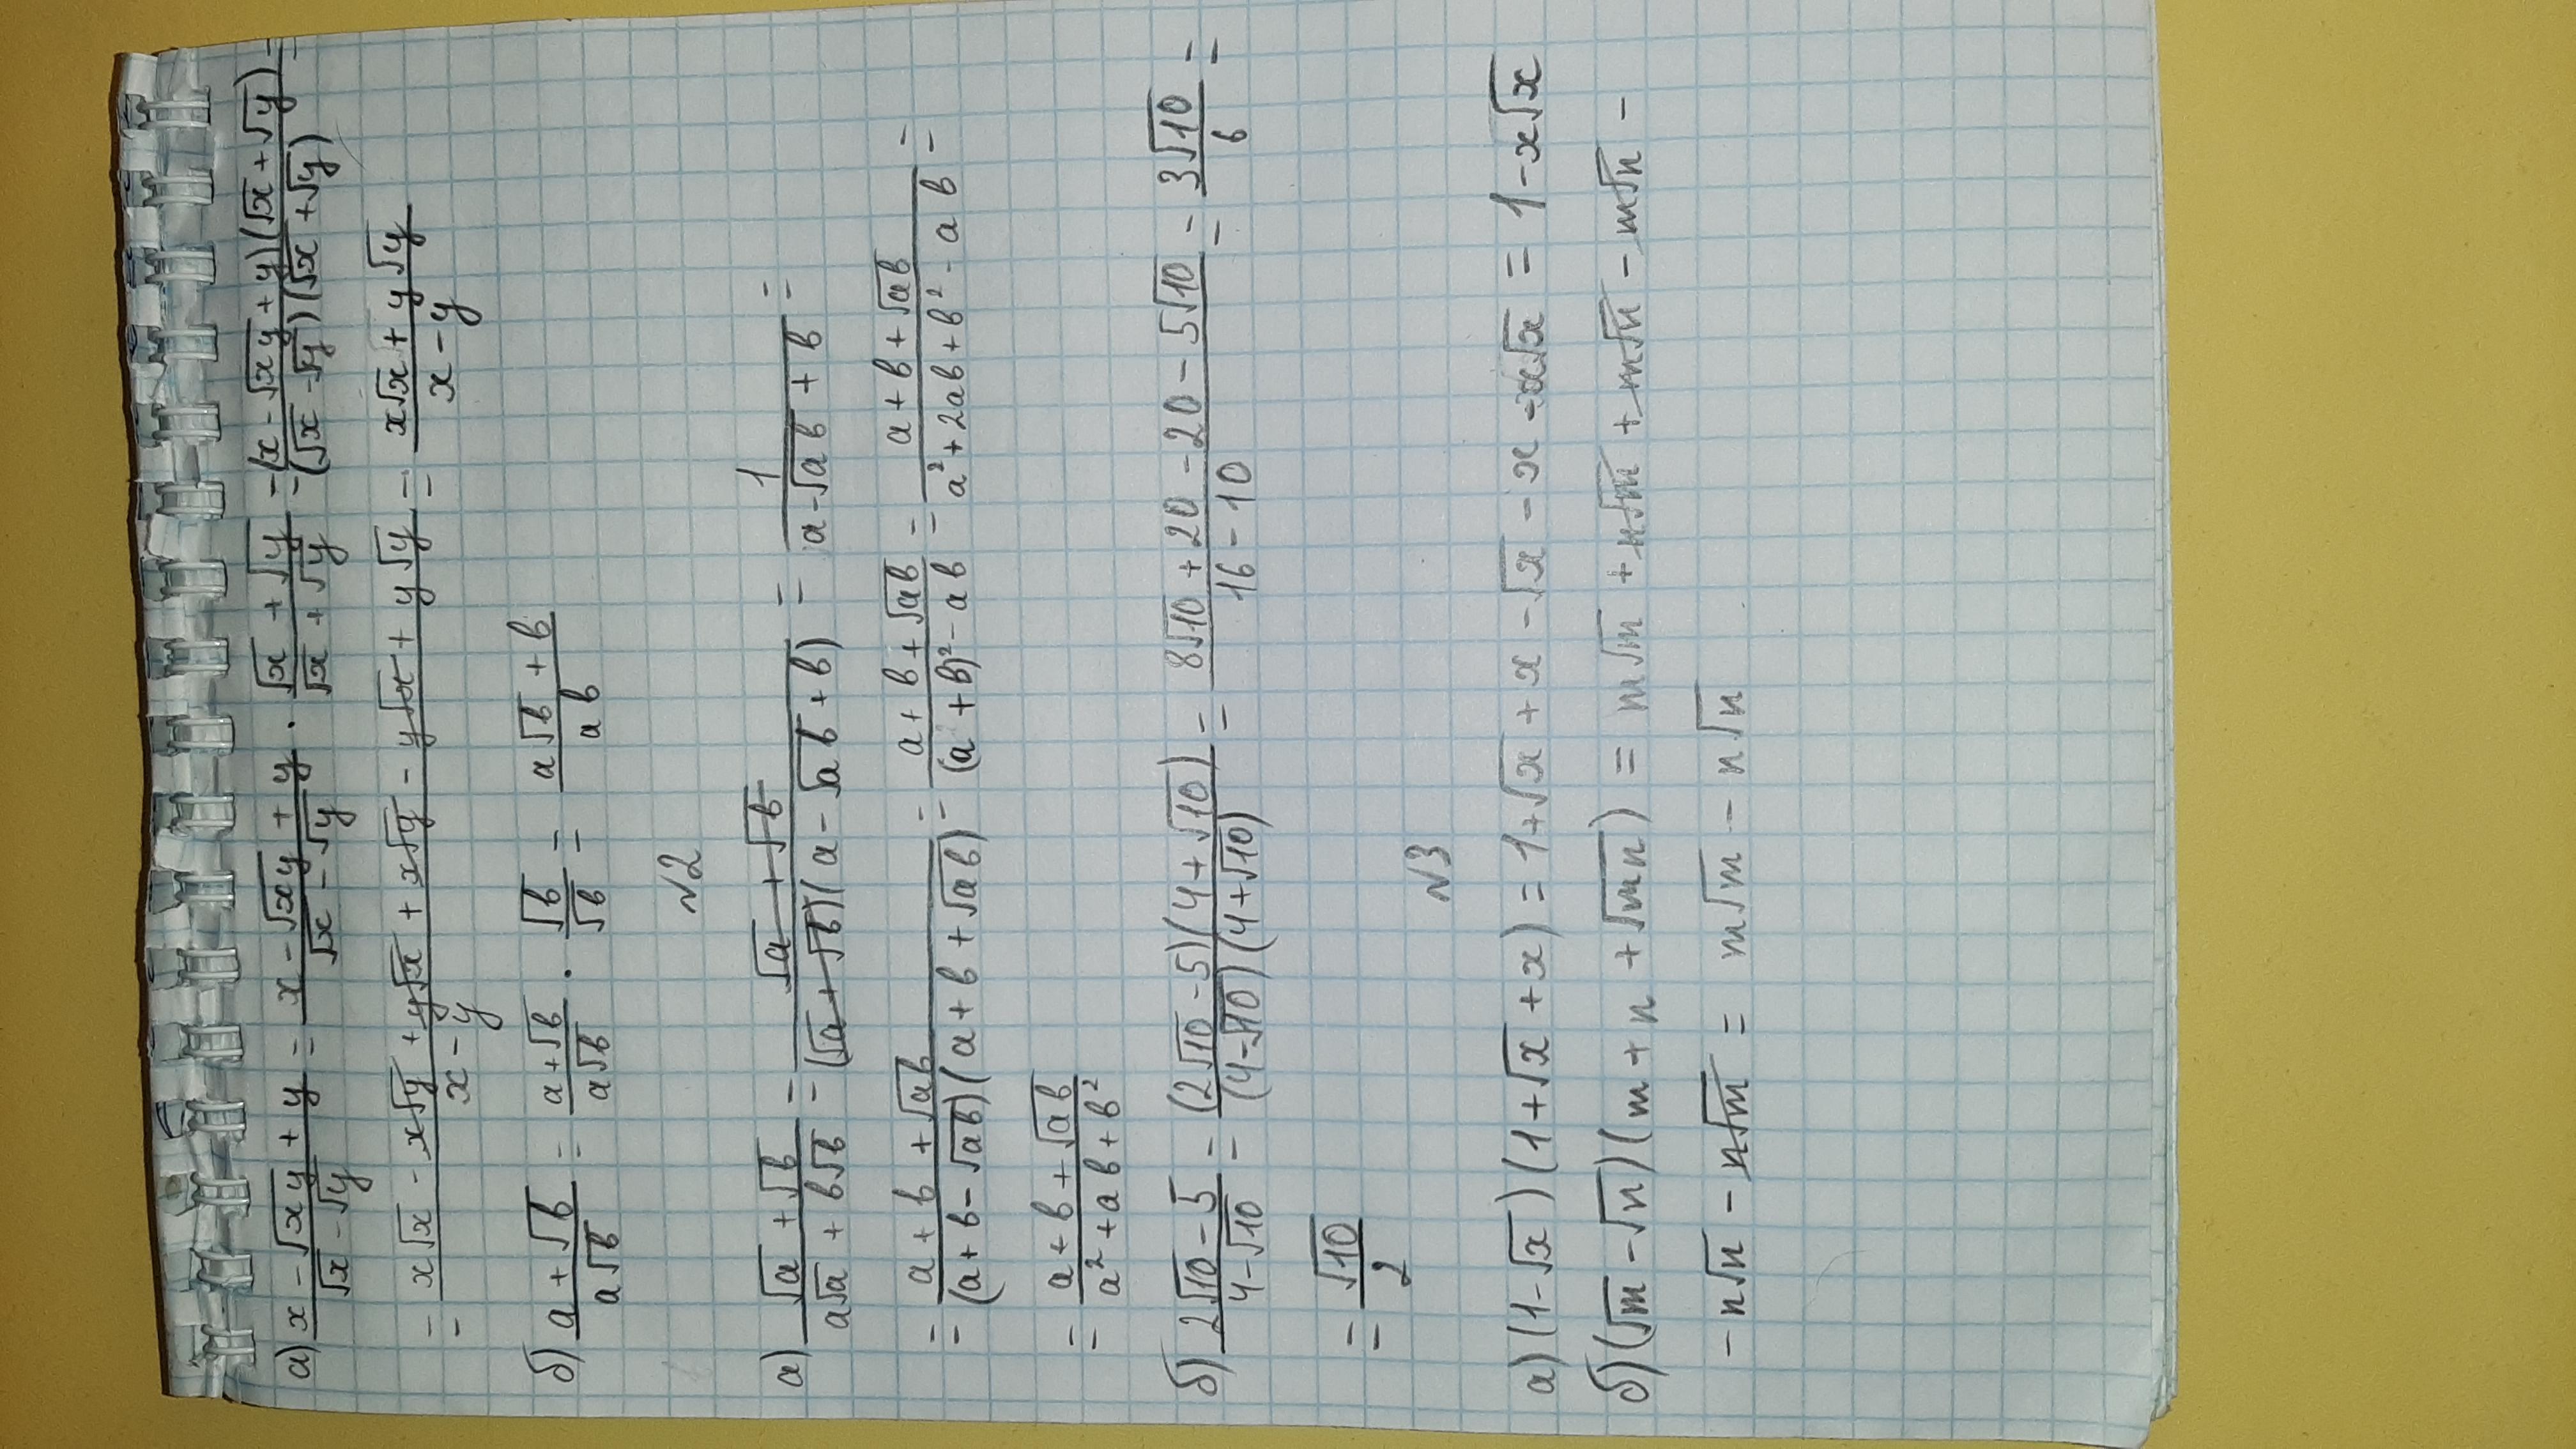 а) (x - √xy + y)/(√x - √y) = (x - √xy + y)/(√x - √y) · (√x + √y)/(√x + √y) = ((x - √xy + y)(√x + √y))/((√x - √y)(√x + √y)) =
= (x√x - x√y + y√x + x√y - y√x + y√y)/(x - y) = (x√x + y√y)/(x - y)
б) (a + √b)/(a√b) = (a + √b)/(a√b) · √b/√b = (a√b + b)/(ab)
№2
а) (√a + √b)/(a√a + b√b) = (√a + √b)/((√a + √b)(a - √ab + b)) = 1/(a - √ab + b) =
= (a + b + √ab)/((a + b - √ab)(a + b + √ab)) = (a + b + √ab)/((a + b)² - ab) = (a + b + √ab)/(a² + 2ab + b² - ab) =
= (a + b + √ab)/(a² + ab + b²)
б) (2√10 - 5)/(4 - √10) = ((2√10 - 5)(4 + √10))/((4 - √10)(4 + √10)) = (8√10 + 20 - 20 - 5√10)/(16 - 10) = (3√10)/6 =
= √10/2
№3
а) (1 - √x)(1 + √x + x) = 1 + √x + x - √x - x - x√x = 1 - x√x
б) (√m - √n)(m + n + √mn) = m√m + n√m + m√n - m√n -
- n√n - n√m = m√m - n√n